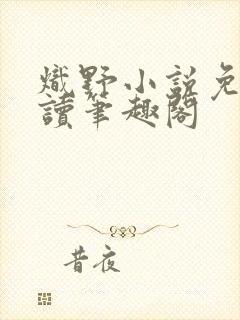 熾野小說免
讀筆趣閣
昔夜